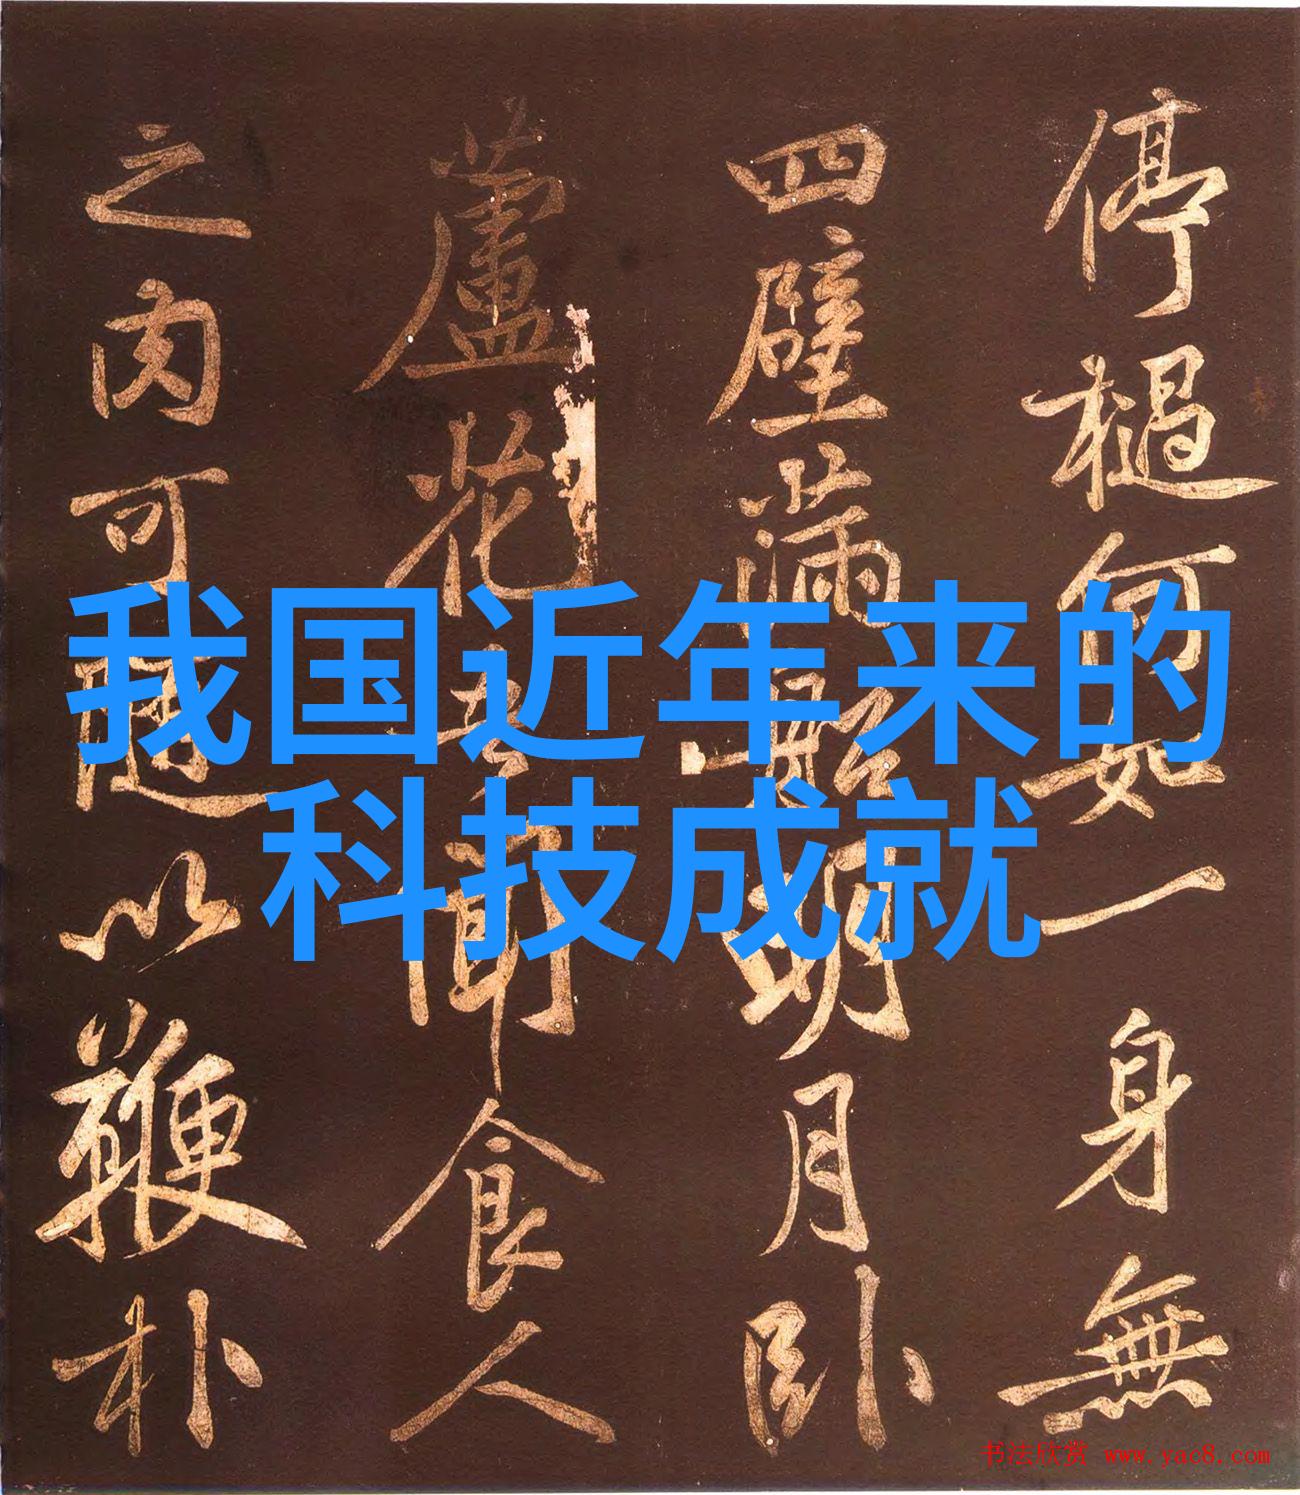 我国近年来的
科技成就
停檛何如一身無
四壁滿船明月卧
蘆花吾聞食人
之肉可隨以鞭朴
书法欣赏 www.yac8.com